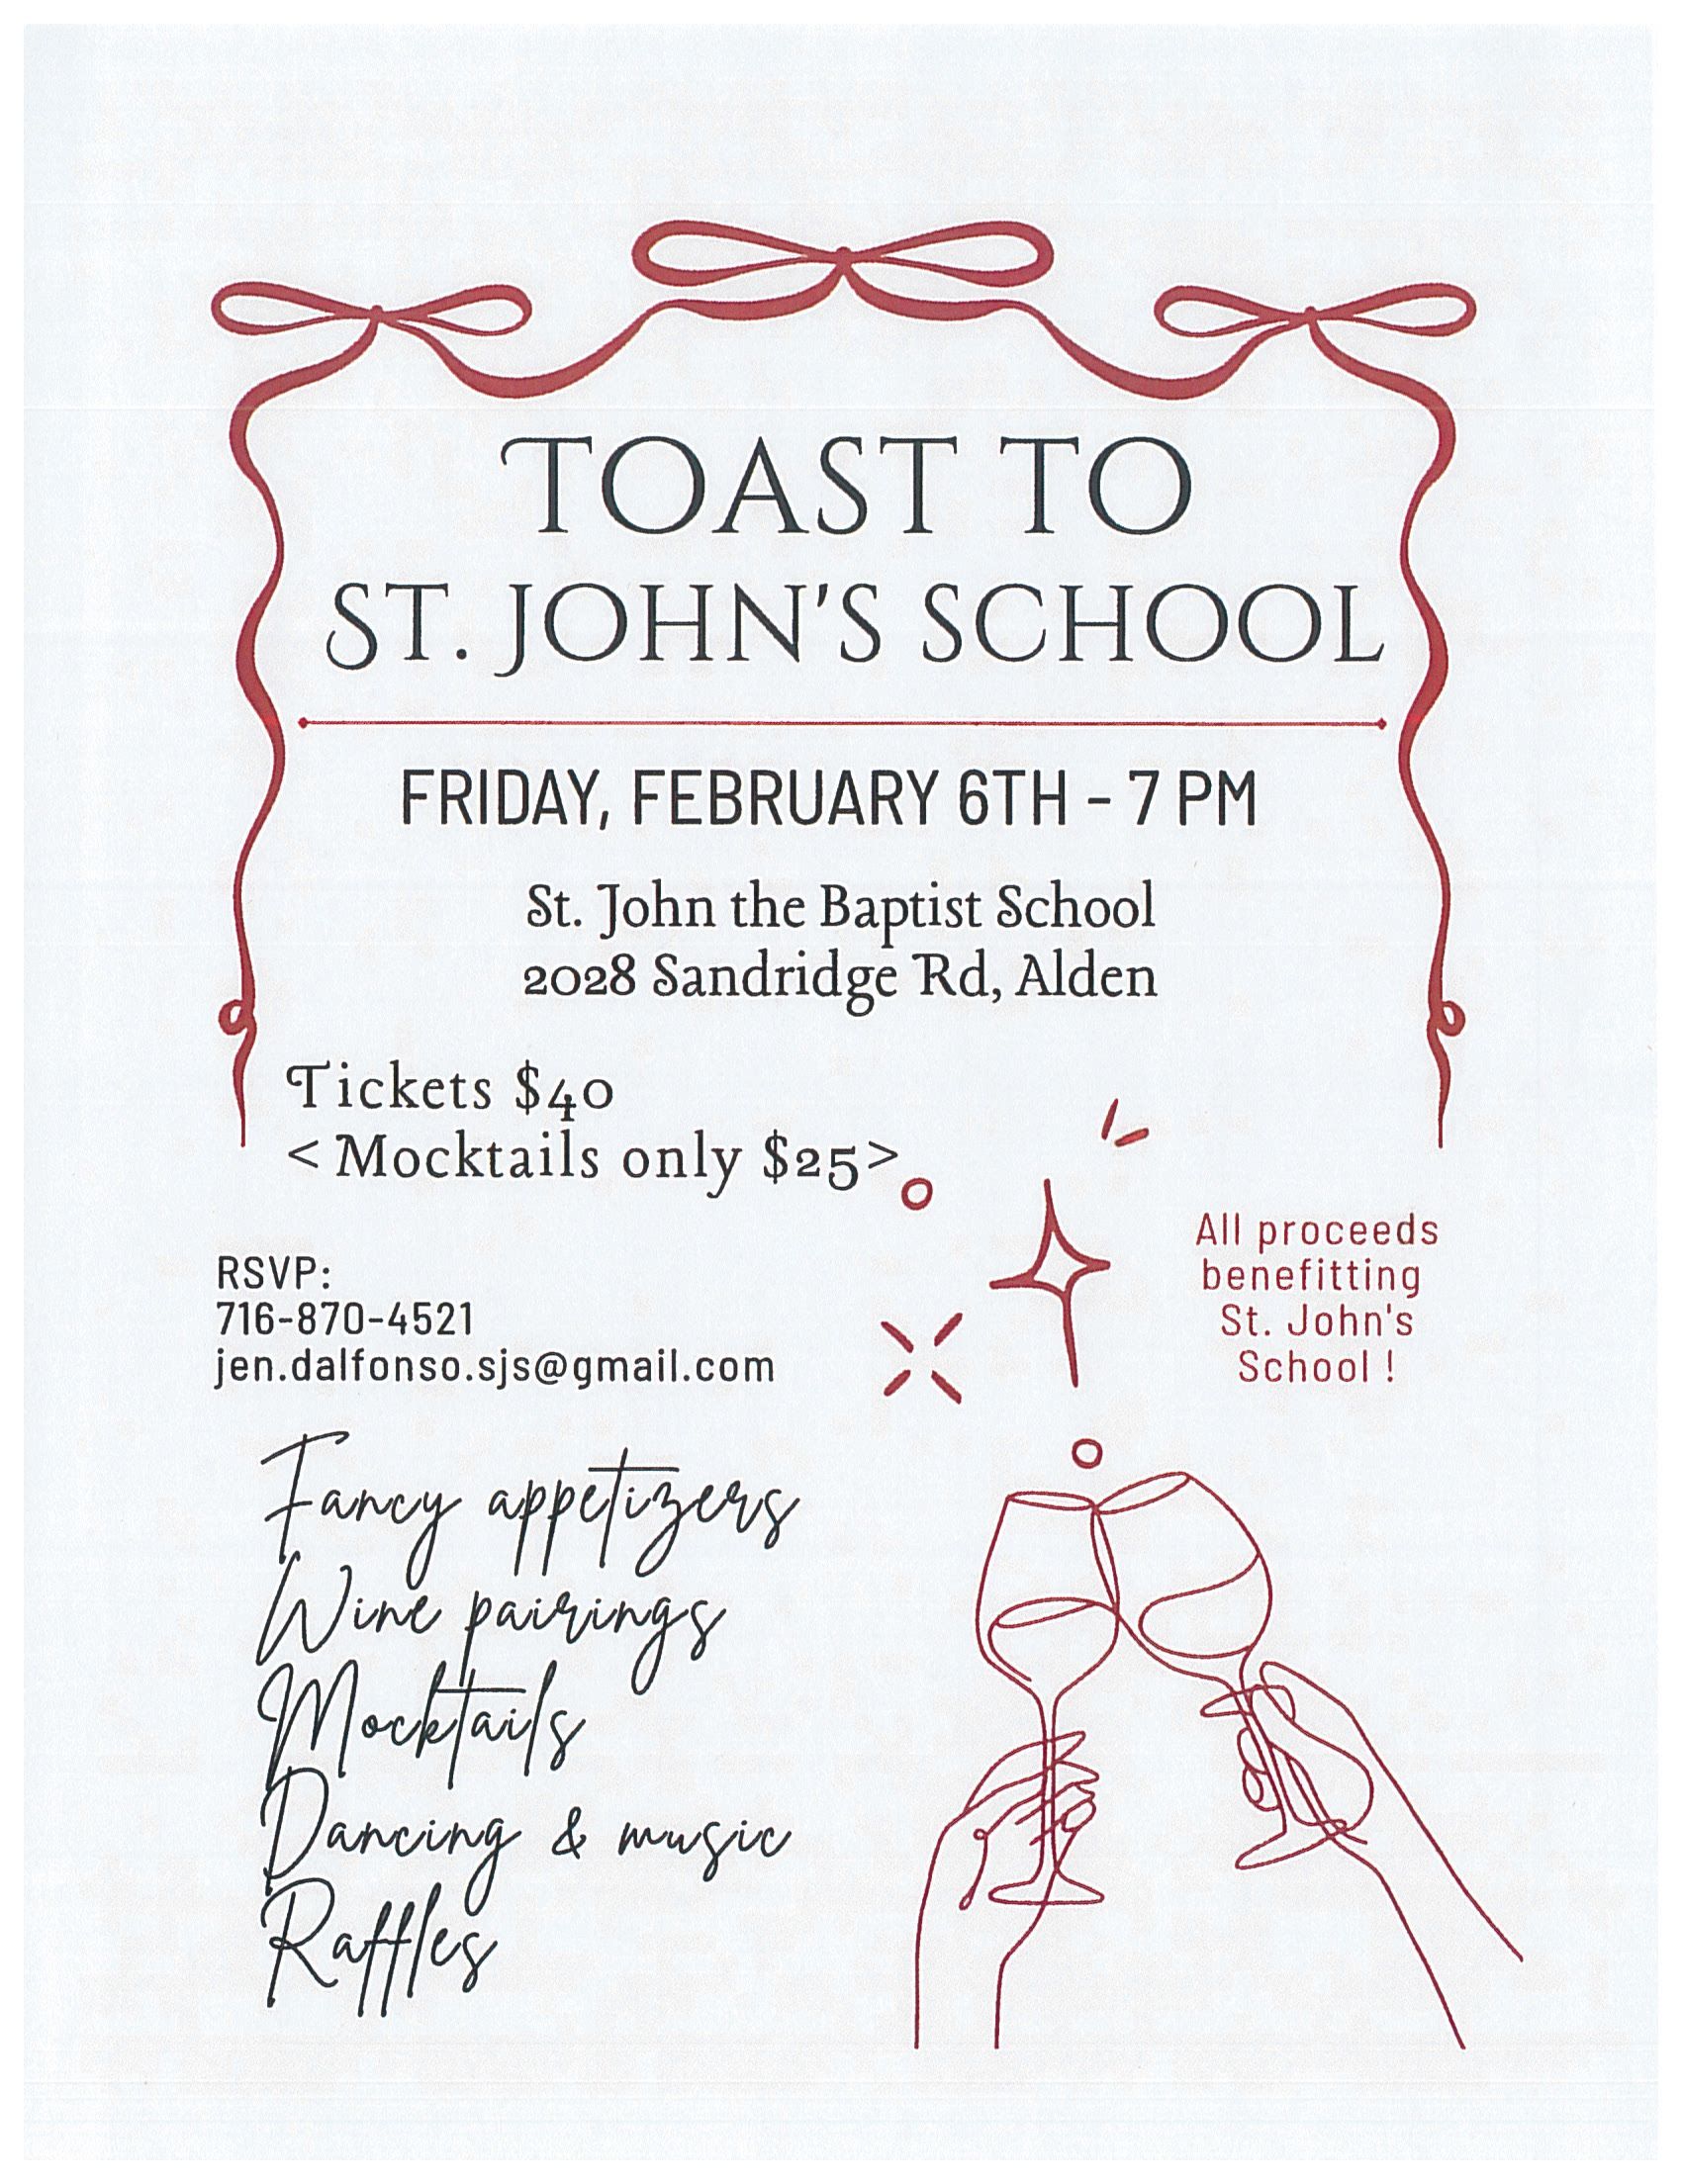 TOAST TO
ST. JOHN'S SCHOOL
FRIDAY, FEBRUARY 6TH - 7 PM
St. John the Baptist School
2028 Sandridge Rd, Alden
Tickets $40
< Mocktails only $25>
RSVP:
716-870-4521
jen.dalfonso.sjs@gmail.com
All proceeds
benefitting
St. John's
School !
Fancy appetizers
Wine pairings
Mocktails
Dancing & music
Raffles